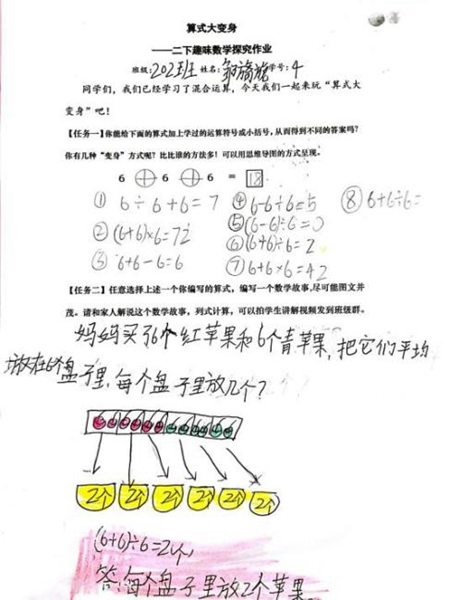 算式大变身
——二下趣味数学探究作业
班级:202班 姓名: 学号:4
同学们，我们已经学习了混合运算，今天我们一起来玩“算式大
变身”吧！
【任务一】你能给下面的算式加上学过的运算符号或小括号，从而得到不同的答案吗？
你有几种“变身”方式呢？比比谁的方法多！可以用思维导图的方式呈现。
6 + 6 + 6 = 18
① 6÷6+6=7 ④ 6-6÷6=5 ⑧ 6+6÷6=
② (6+6)×6=72 ⑤ (6-6)÷6=0
③ 6+6-6=6 ⑥ (6+6)÷6=2
⑦ 6+6×6=42
【任务二】任意选择上述一个你编写的算式，编写一个数学故事，尽可能图文并
茂。请和家人解说这个数学故事，列式计算，可以拍学生讲解视频发到班级群。
妈妈买了6个红苹果和6个青苹果，把它们平均
放在6个盘子里，每个盘子里放几个？
2个 2个 2个 2个 2个 2个
(6+6)÷6=2个
答:每个盘子里放2个苹果。